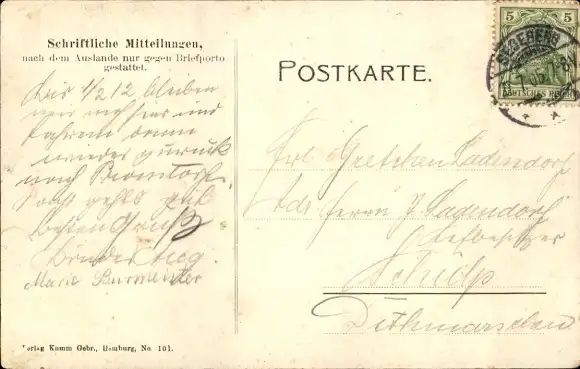 Schriftliche Mitteilungen,
nach dem Auslande nur gegen Briefporto
gestattet.
Bis 1/2 12 bleiben
wir noch hier und
fahren dann
wieder zurück
nach
Sonst gehts gut
besten Gruß
Marie Burmeister
Verlag Kamm Gebr., Hamburg, No. 101.
POSTKARTE.
5 5
DEUTSCHES REICH
SEGEBERG
Frl. Gretchen Ladendorf
Adr Herrn J. Ladendorf
Hofbesitzer
Schülp
Dithmarschen